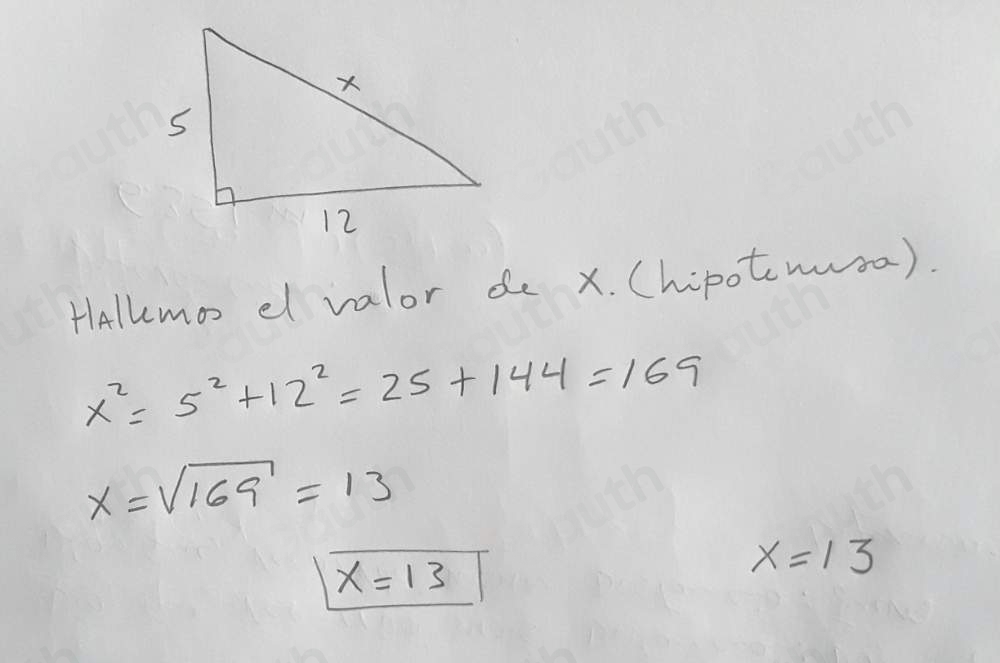 x
5
12
Hallemos el valor de x. (hipotenusa).
x² = 5² + 12² = 25 + 144 = 169
x = √169 = 13
x = 13 x = 13